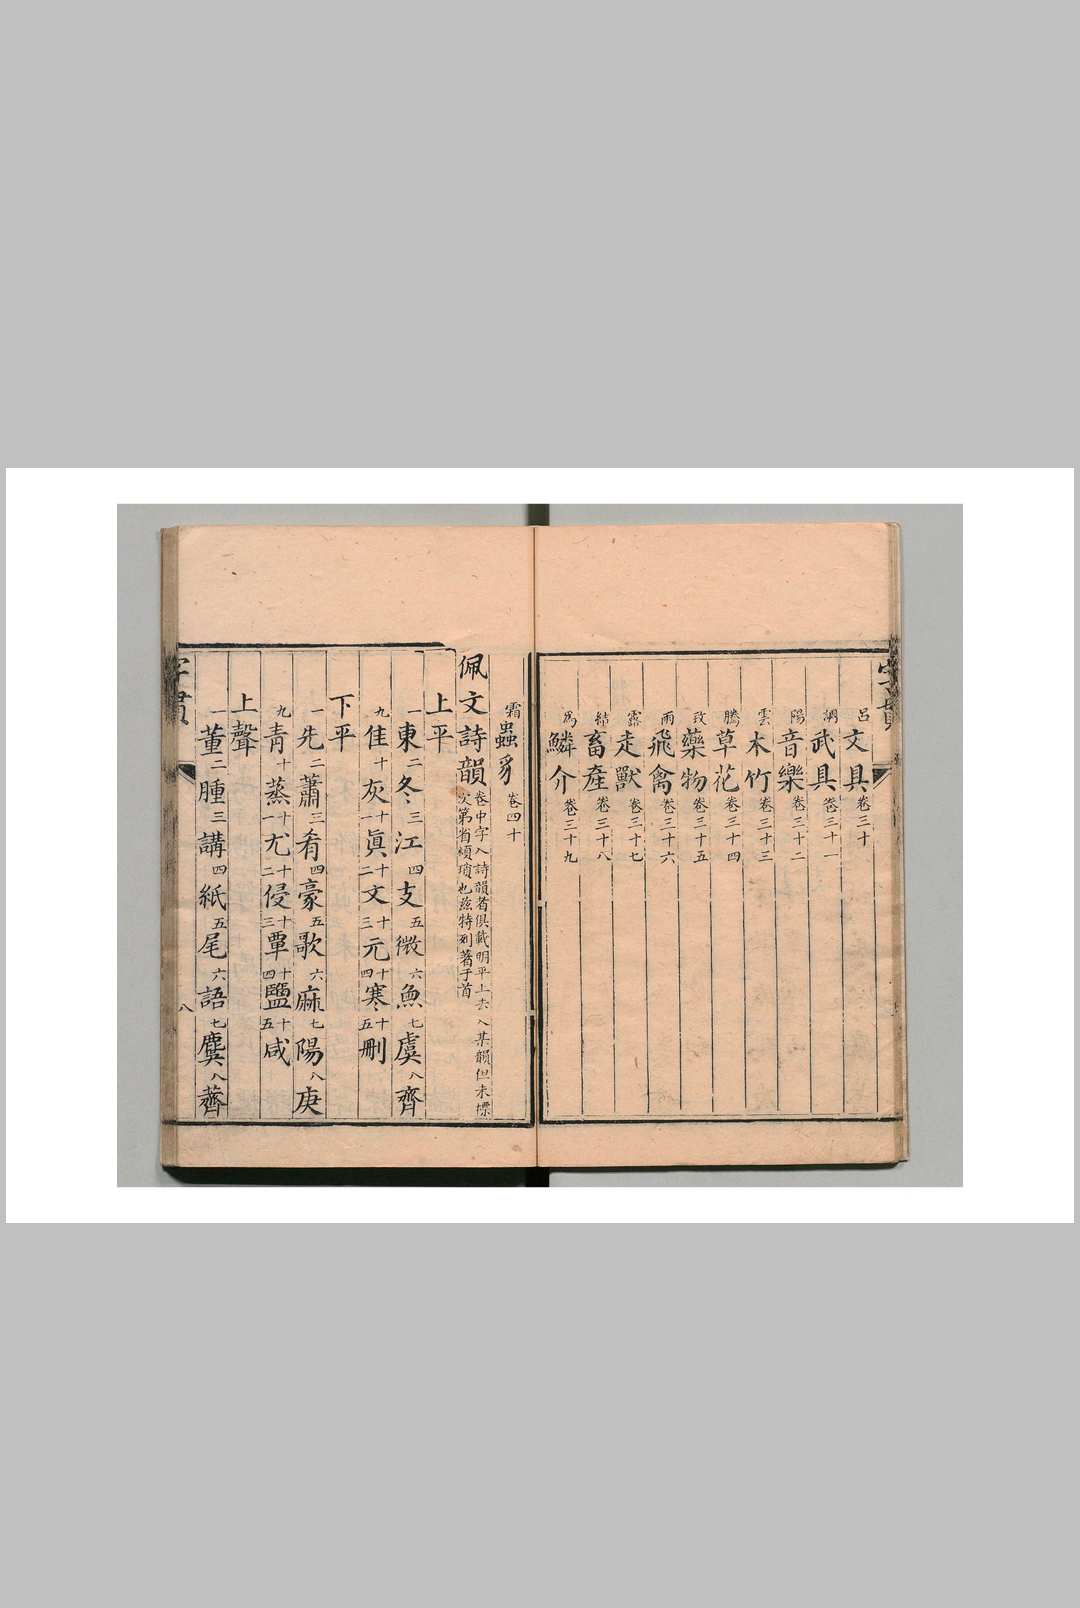 字貫
呂文具卷三十
調武具卷三十一
陽音樂卷三十二
雲木竹卷三十三
騰草花卷三十四
致藥物卷三十五
雨飛禽卷三十六
露走獸卷三十七
結畜產卷三十八
為鱗介卷三十九
霜蟲豸卷四十
佩文詩韻卷中字入詩韻者俱載明平上去入某韻但未標次第省煩瑣也茲特列著于首
上平
一東二冬三江四支五微六魚七虞八齊
九佳十灰十一眞十二文十三元十四寒十五刪
下平
一先二蕭三肴四豪五歌六麻七陽八庚
九青十蒸十一尤十二侵十三覃十四鹽十五咸
上聲
一董二腫三講四紙五尾六語七麌八薺
字貫
八